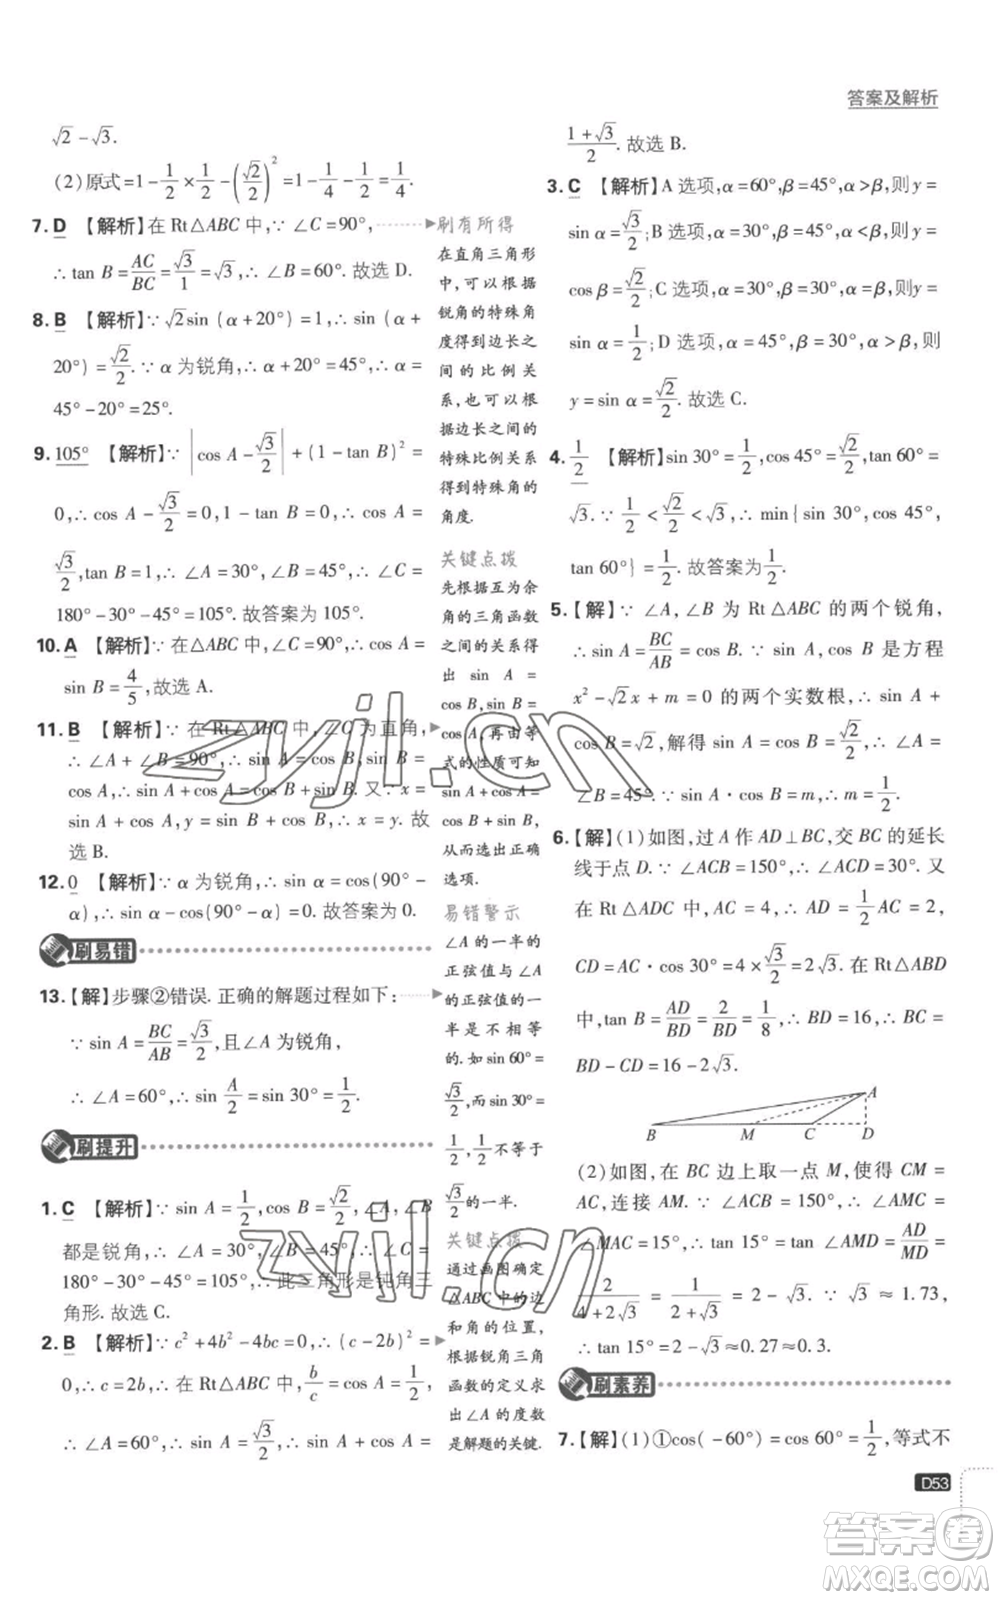 答案及解析
√2-√3.
(2)原式=1-1/2×1/2-(√2/2)²=1-1/4-1/2=1/4.
7. D 【解析】在 Rt△ABC 中,∵ ∠C=90°,
∴ tan B=AC/BC=√3/1=√3,∴ ∠B=60°.故选 D.
8. B 【解析】∵ √2sin (α+20°)=1,∴ sin (α+
20°)=√2/2.∵ α 为锐角,∴ α+20°=45°,∴ α=
45°-20°=25°.
9. 105° 【解析】∵ |cos A-√3/2|+(1-tan B)²=
0,∴ cos A-√3/2=0,1-tan B=0,∴ cos A=
√3/2,tan B=1,∴ ∠A=30°,∠B=45°,∴ ∠C=
180°-30°-45°=105°.故答案为 105°.
10. A 【解析】∵ 在△ABC 中,∠C=90°,∴ cos A=
sin B=4/5,故选 A.
11. B 【解析】∵ 在 Rt△ABC 中,∠C 为直角,
∴ ∠A+∠B=90°,∴ sin A=cos B,sin B=
cos A,∴ sin A+sin B=cos B+cos A.又∵ x=
sin A+cos A,y=cos B+sin B,∴ x=y.故
选 B.
12. 0 【解析】∵ α 为锐角,∴ sin α=cos(90°-
α),∴ sin α-cos(90°-α)=0.故答案为 0.
刷易错
13.【解】步骤②错误.正确的解题过程如下:
∵ sin A=BC/AB=√3/2,且∠A 为锐角,
∴ ∠A=60°,∴ sin A/2=sin 30°=1/2.
刷提升
1. C 【解析】∵ sin A=1/2,cos B=√2/2,∠A,∠B
都是锐角,∴ ∠A=30°,∠B=45°,∴ ∠C=
180°-30°-45°=105°,∴ 此三角形是钝角三
角形.故选 C.
2. B 【解析】∵ c²+4b²-4bc=0,∴ (c-2b)²=
0,∴ c=2b,∴ 在 Rt△ABC 中,b/c=cos A=1/2,
∴ ∠A=60°,∴ sin A=√3/2,∴ sin A+cos A=
刷有所得
在直角三角形
中,可以根据
锐角的特殊角
度得到边长之
间的比例关
系,也可以根
据边长之间的
特殊比例关系
得到特殊角的
角度.
关键点拨
先根据互为余
角的三角函数
之间的关系得
出 sin A=
cos B,sin B=
cos A,再由等
式的性质可知
sin A+sin B=
cos A+cos B,
从而选出正确
选项.
易错警示
∠A 的一半的
正弦值与∠A
的正弦值的一
半是不相等
的.如 sin 60°=
√3/2,而 sin 30°=
1/2,1/2不等于
√3/2的一半.
关键点拨
通过画图确定
△ABC中的边
和角的位置,
根据锐角三角
函数的定义求
出∠A的度数
是解题的关键.
(1+√3)/2.故选 B.
3. C 【解析】A 选项,α=60°,β=45°,α>β,则 y=
sin α=√3/2;B 选项,α=30°,β=45°,α<β,则 y=
cos β=√2/2;C 选项,α=30°,β=30°,α=β,则 y=
sin α=1/2;D 选项,α=45°,β=30°,α>β,则
y=sin α=√2/2.故选 C.
4. 1/2 【解析】sin 30°=1/2,cos 45°=√2/2,tan 60°=
√3.∵ 1/2<√2/2<√3,∴ min{sin 30°,cos 45°,
tan 60°}=1/2.故答案为1/2.
5.【解】∵ ∠A,∠B 为 Rt△ABC 的两个锐角,
∴ sin A=BC/AB=cos B.∵ sin A,cos B 是方程
x²-√2x+m=0 的两个实数根,∴ sin A+
cos B=√2,解得 sin A=cos B=√2/2,∴ ∠A=
∠B=45°,∴ sin A·cos B=m,∴ m=1/2.
6.【解】(1)如图,过 A 作 AD⊥BC,交 BC 的延长
线于点 D.∵ ∠ACB=150°,∴ ∠ACD=30°.又
在 Rt△ADC 中,AC=4,∴ AD=1/2AC=2,
CD=AC·cos 30°=4×√3/2=2√3.在 Rt△ABD
中,tan B=AD/BD=2/BD=1/8,∴ BD=16,∴ BC=
BD-CD=16-2√3.
A
B M C D
(2)如图,在 BC 边上取一点 M,使得 CM=
AC,连接 AM.∵ ∠ACB=150°,∴ ∠AMC=
∠MAC=15°,∴ tan 15°=tan ∠AMD=AD/MD=
2/(4+2√3)=1/(2+√3)=2-√3≈0.27≈0.3,
∴ tan 15°=2-√3≈0.27≈0.3.
刷素养
7.【解】(1)①cos(-60°)=cos 60°=1/2,等式不
D53
答案卷
MXQE.COM
zyjl.cn
zyjl.cn